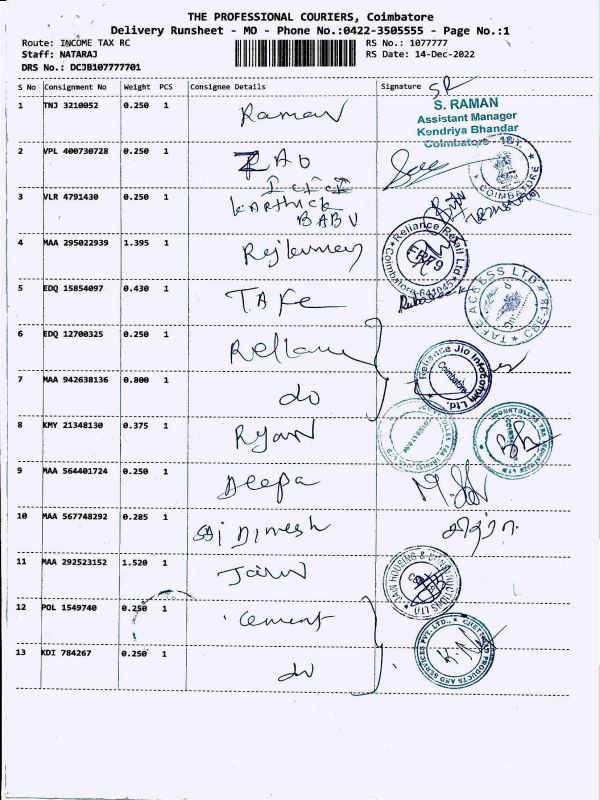 THE PROFESSIONAL COURIERS, Coimbatore
Delivery Runsheet - MO - Phone No.:0422-3505555 - Page No.:1
Route: INCOME TAX RC RS No.: 1077777
Staff: NATARAJ RS Date: 14-Dec-2022
DRS No.: DCJB107777701
S No Consignment No Weight PCS Consignee Details Signature SR
1 TNJ 3210052 0.250 1 Raman
S. RAMAN
Assistant Manager
Kendriya Bhandar
Coimbatore - 18
2 VPL 400730728 0.250 1 RAO
COIMBATORE
3 VLR 4791430 0.250 1 KARTHICK
BABU
4 MAA 295022939 1.395 1 Rejkumar Reliance Retail Ltd Coimbatore-641045
5 EDQ 15854097 0.430 1 TAFE TAFE ACCESS LTD CBE-18
6 EDQ 12700325 0.250 1 Reliance Reliance Jio Infocomm Ltd. Coimbatore
7 MAA 942638136 0.800 1 do
8 KMY 21348130 0.375 1 Ryan
9 MAA 564401724 0.250 1 Deepa
10 MAA 567748292 0.285 1 Sai Dinesh
11 MAA 292523152 1.520 1 Jain JAIN HOUSING & CONSTRUCTIONS LTD
12 POL 1549740 0.250 1 Cement
13 KDI 784267 0.250 1 do K.N